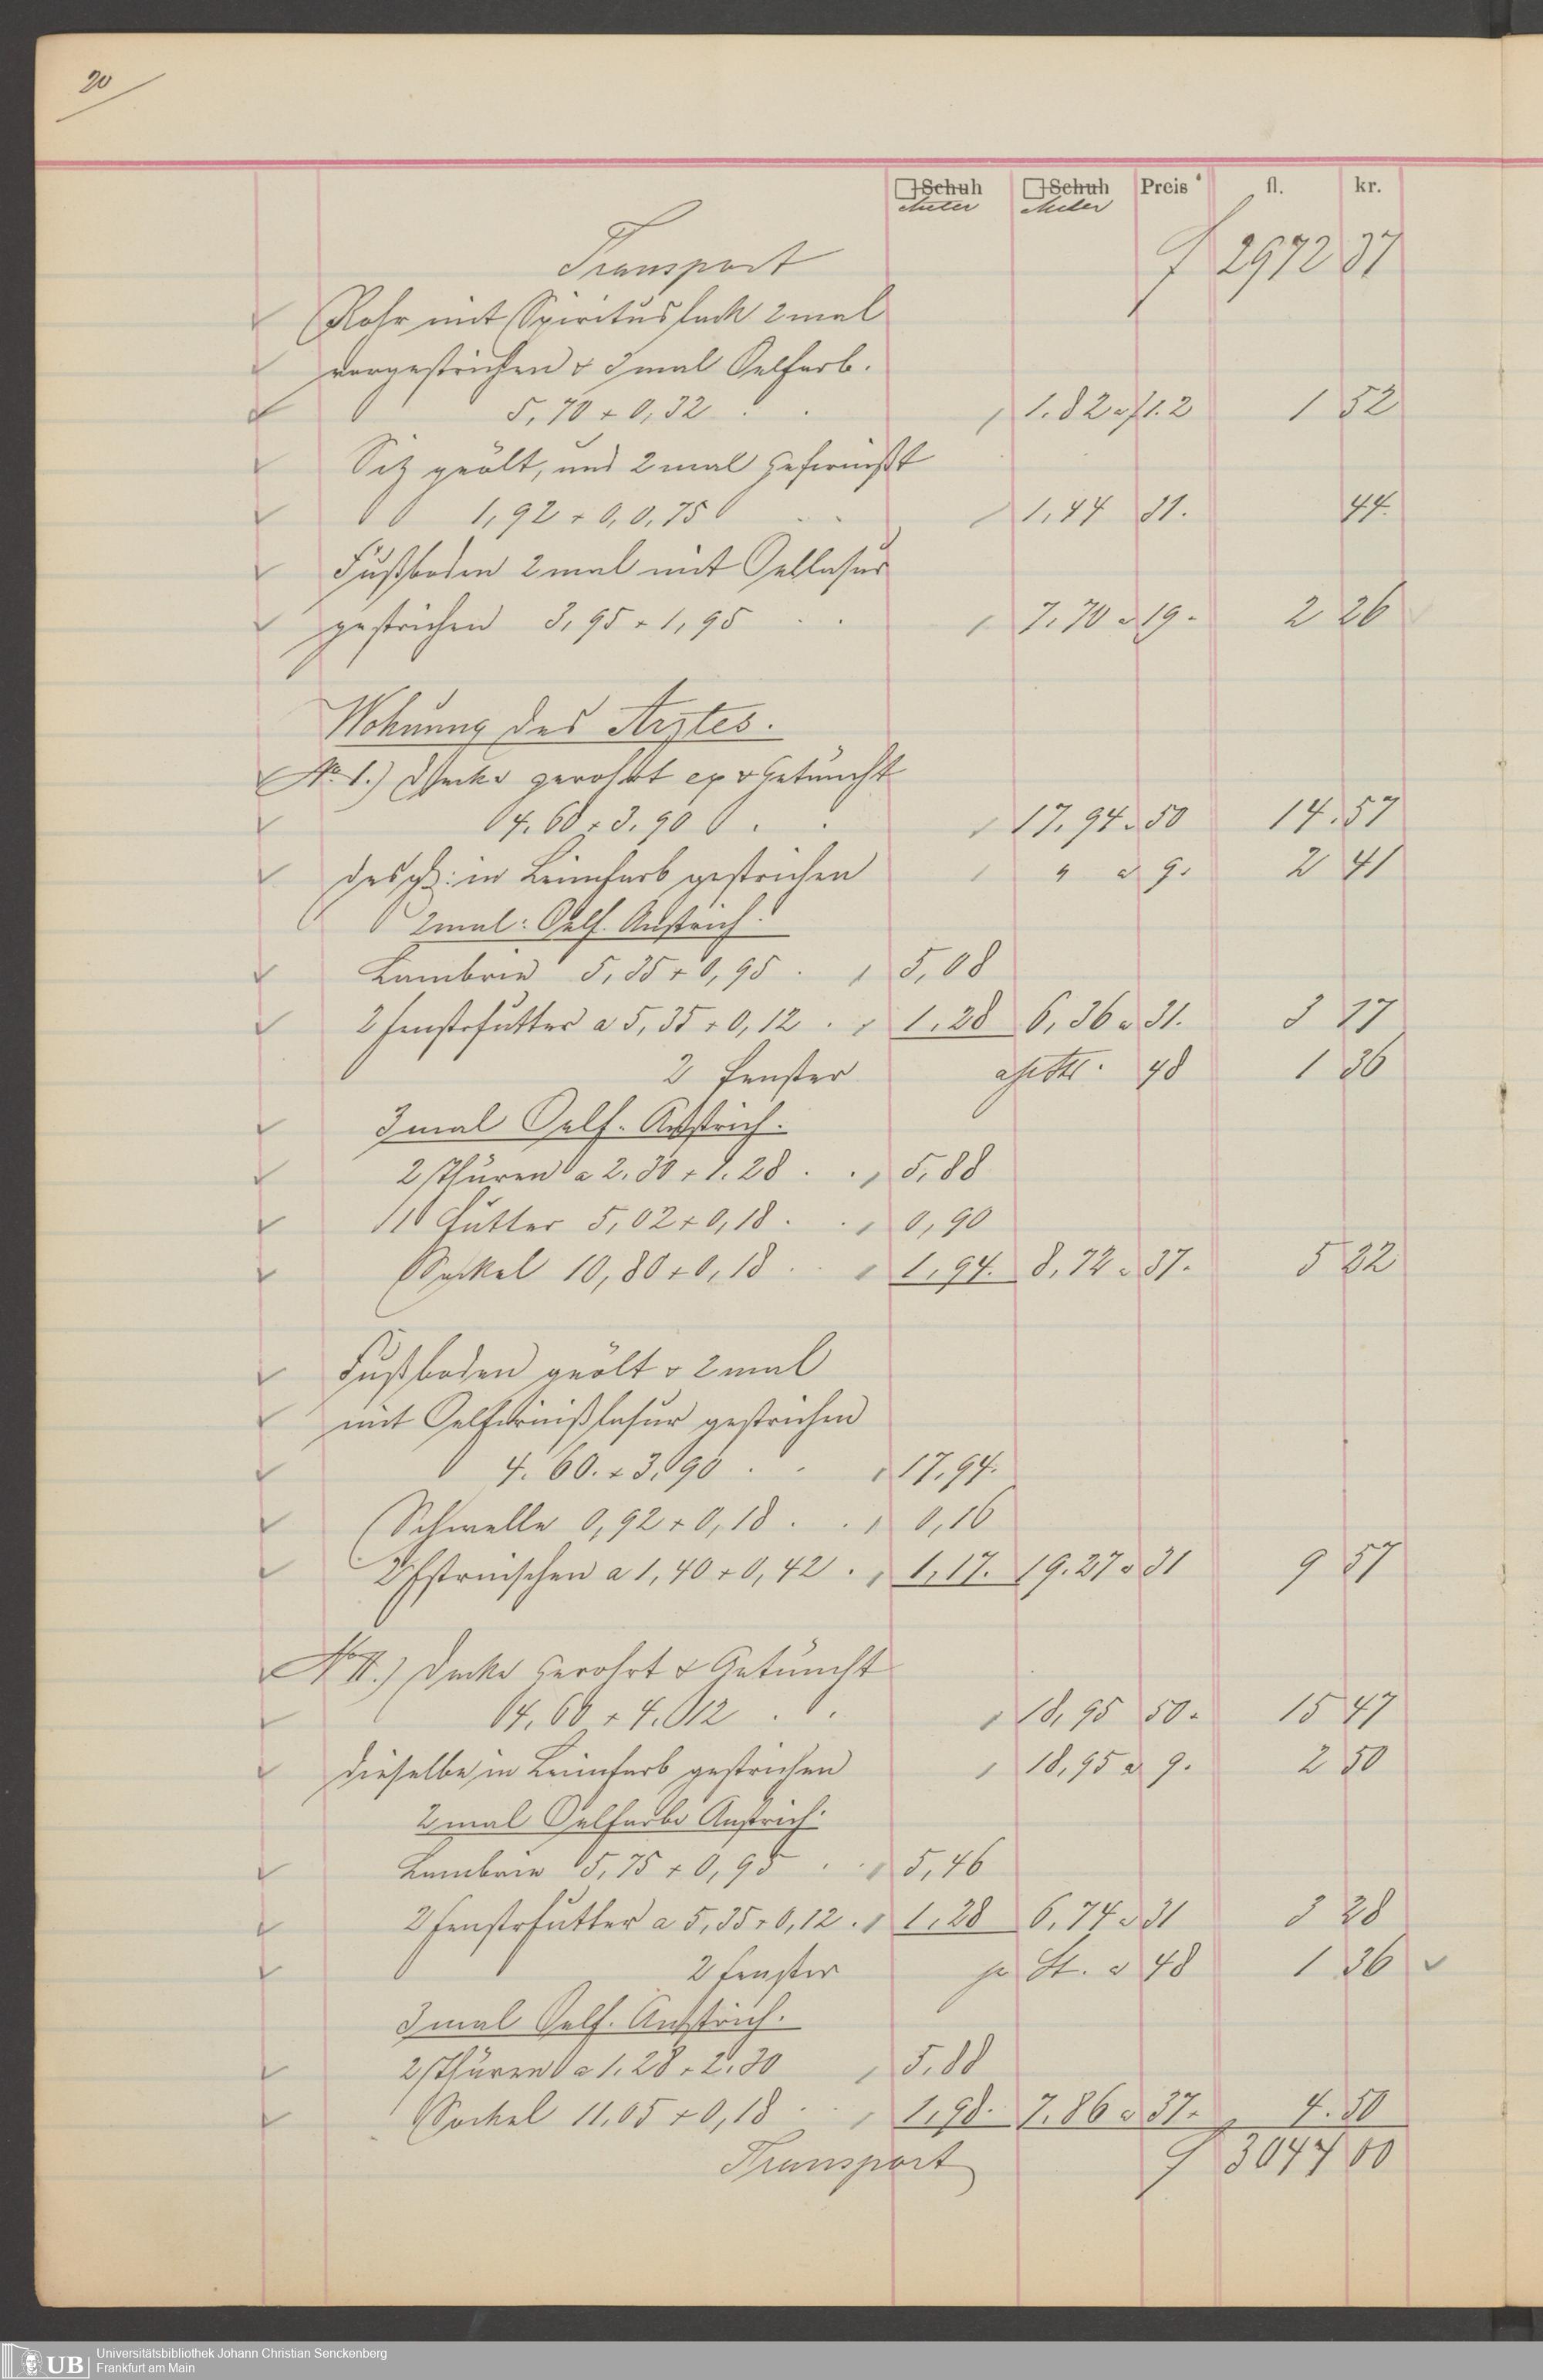 20
□Schuh □Schuh Preis fl. kr.
Meter Meter
Transport f 2972 37
Rohr mit Spirituslack 2mal
vorgestrichen & 3mal Oelfarb.
5,70 + 0,32 . . 1.82 a f1.2 1 52
Sitz geölt, und 2mal gefirnißt
1,92 + 0,0,75 . . 1,44 31. 44.
Fußboden 2mal mit Oellasur
gestrichen 3,95 + 1,95 . . 7,70 a 19. 2 26
Wohnung des Arztes.
No I.) Decke gerohrt & Getüncht
4.60 + 3.90 . . 17,94 a 50 14.57
desgl: in Leimfarb gestrichen " a 9. 2 41
2mal: Oelf. Anstrich.
Lambrie 5,35 + 0,95 . 5,08
2 Fenstrfutter a 5,35 + 0,12 . 1.28 6,36 a 31. 3 17
2 Fenster 48 1 36
3mal Oelf. Anstrich.
2 Thüren a 2.30 + 1.28 . . 5,88
1 Futter 5,02 + 0,18 . . 0,90
Sockel 10,80 + 0,18 . . 1,94. 8,72 a 37. 5 22
Fußboden geölt & 2mal
mit Oelfirnißlasur gestrichen
4.60. + 3.90 . . 17,94.
Schwelle 0,92 + 0,18 . . 0,16
2 Fstrnischen a 1,40 + 0,42 . 1,17. 19.27 a 31 9 57
No II.) Decke Gerohrt & Getüncht
4,60 + 4.12 . . 18,95 50. 15 47
dieselbe in Leimfarb gestrichen 18,95 a 9. 2 50
2mal Oelfarbe Anstrich.
Lambrie 5,75 + 0,95 . . 5,46
2 Fenstrfutter a 5,35 + 0,12 . 1,28 6,74 a 31 3 28
2 Fenster pr St. a 48 1 36
3mal Oelf. Anstrich.
2 Thüren a 1.28 + 2.30 5.88
Sockel 11.05 + 0,18 . . 1,98. 7.86 a 37. 4.50
Transport f 3044 00
UB Universitätsbibliothek Johann Christian Senckenberg
Frankfurt am Main